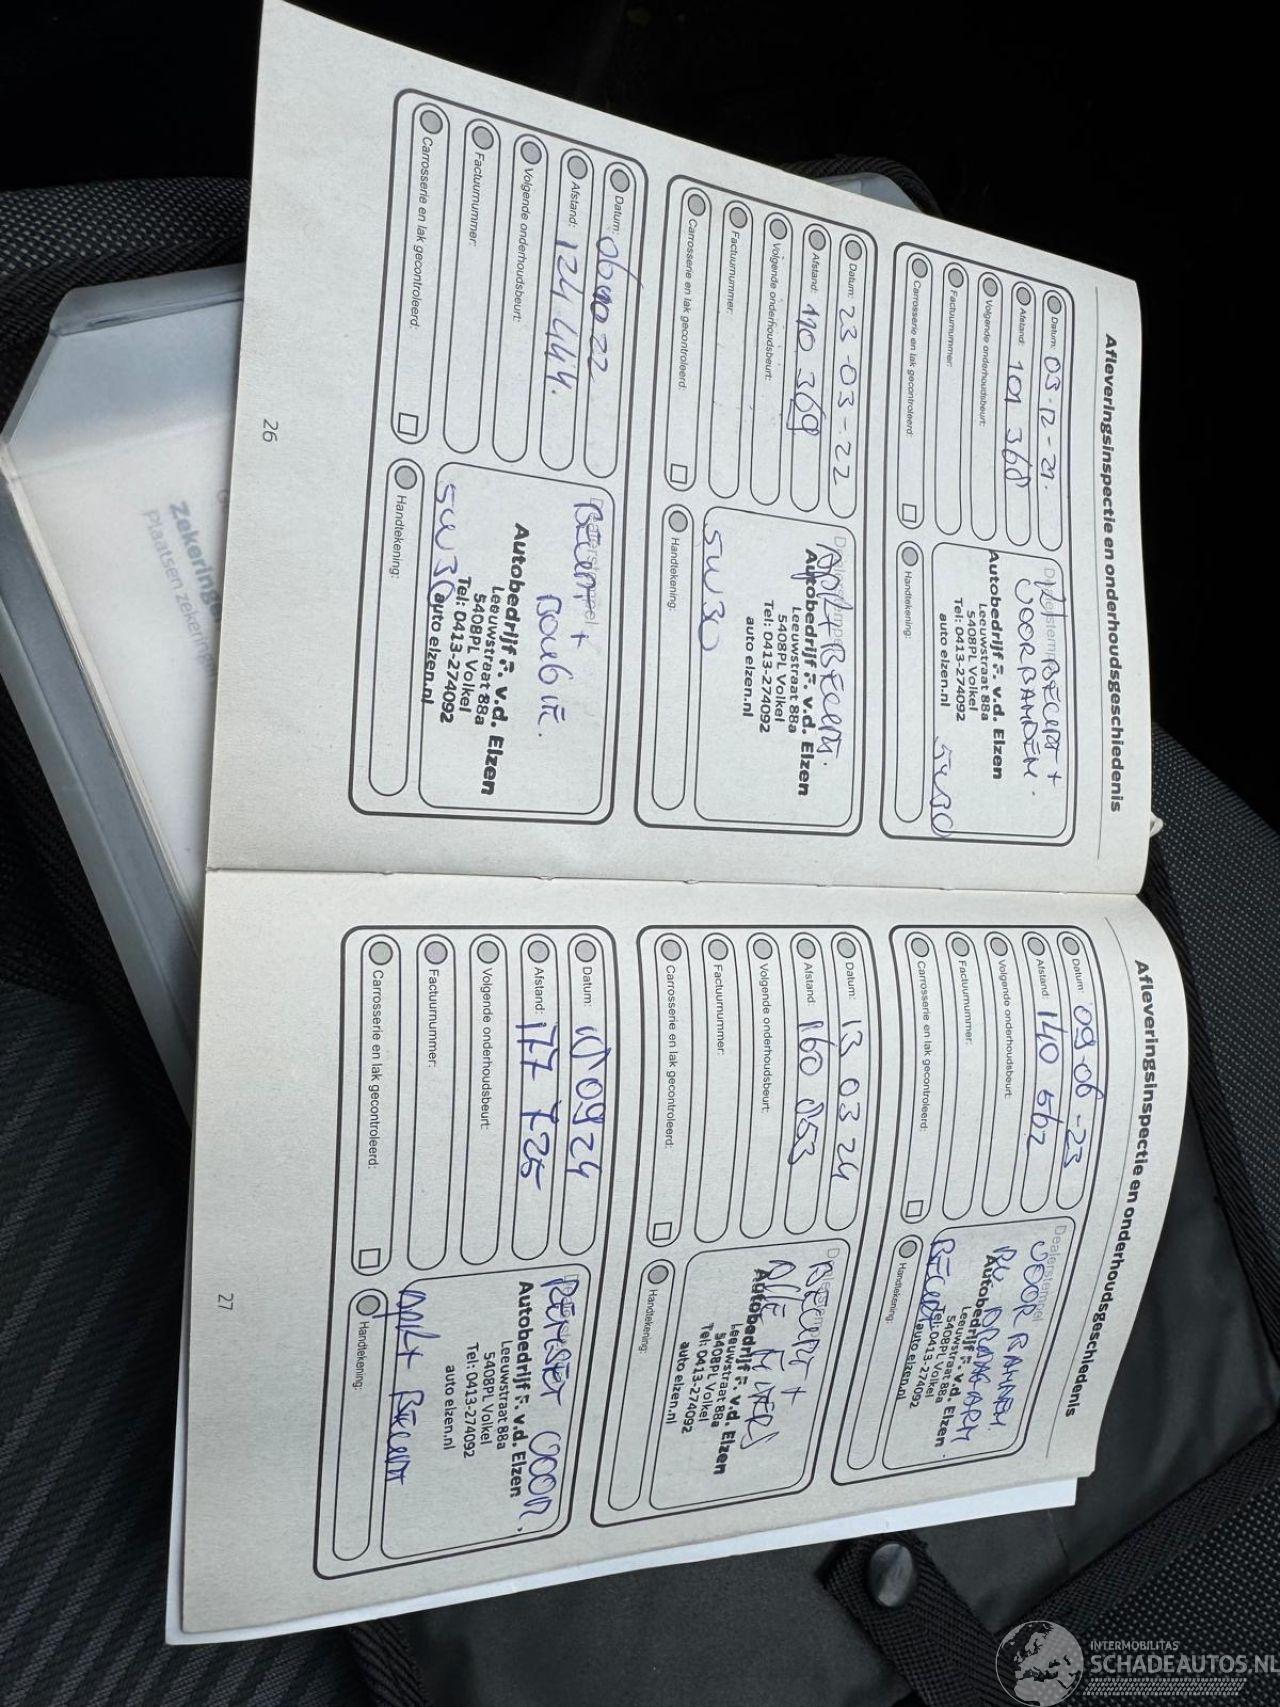 Afleveringsinspectie en onderhoudsgeschiedenis
Datum: 03-12-21.
Afstand: 101 368
Volgende onderhoudsbeurt:
Factuurnummer:
Carrosserie en lak gecontroleerd:
Dealerstempel
BEURT +
VOORBANDEN.
Autobedrijf F. v.d. Elzen
Leeuwstraat 88a
5408PL Volkel
Tel: 0413-274092
auto elzen.nl
5W30
Handtekening:
Datum: 23-03-22
Afstand: 110 369
Volgende onderhoudsbeurt:
Factuurnummer:
Carrosserie en lak gecontroleerd:
Dealerstempel
APK + BEURT.
Autobedrijf F. v.d. Elzen
Leeuwstraat 88a
5408PL Volkel
Tel: 0413-274092
auto elzen.nl
5W30
Handtekening:
Datum: 06 10 22
Afstand: 124 444.
Volgende onderhoudsbeurt:
Factuurnummer:
Carrosserie en lak gecontroleerd:
Dealerstempel
BEURT +
BOUGIE.
Autobedrijf F. v.d. Elzen
Leeuwstraat 88a
5408PL Volkel
Tel: 0413-274092
auto elzen.nl
5W30
Handtekening:
26
Afleveringsinspectie en onderhoudsgeschiedenis
Datum: 09-06-23
Afstand: 140 562
Volgende onderhoudsbeurt:
Factuurnummer:
Carrosserie en lak gecontroleerd:
Dealerstempel
VOOR BANDEN.
RV DRAAGARM
Autobedrijf F. v.d. Elzen
Leeuwstraat 88a
5408PL Volkel
Tel: 0413-274092
auto elzen.nl
BEURT
Handtekening:
Datum: 13 03 24
Afstand: 160 053
Volgende onderhoudsbeurt:
Factuurnummer:
Carrosserie en lak gecontroleerd:
Dealerstempel
BEURT +
FILTERS
Autobedrijf F. v.d. Elzen
Leeuwstraat 88a
5408PL Volkel
Tel: 0413-274092
auto elzen.nl
Handtekening:
Datum: 10 09 24
Afstand: 177 725
Volgende onderhoudsbeurt:
Factuurnummer:
Carrosserie en lak gecontroleerd:
VOOR.
Autobedrijf F. v.d. Elzen
Leeuwstraat 88a
5408PL Volkel
Tel: 0413-274092
auto elzen.nl
APK + BEURT
Handtekening:
27
Plaatsen zekering
INTERMOBILITAS
SCHADEAUTOS.NL